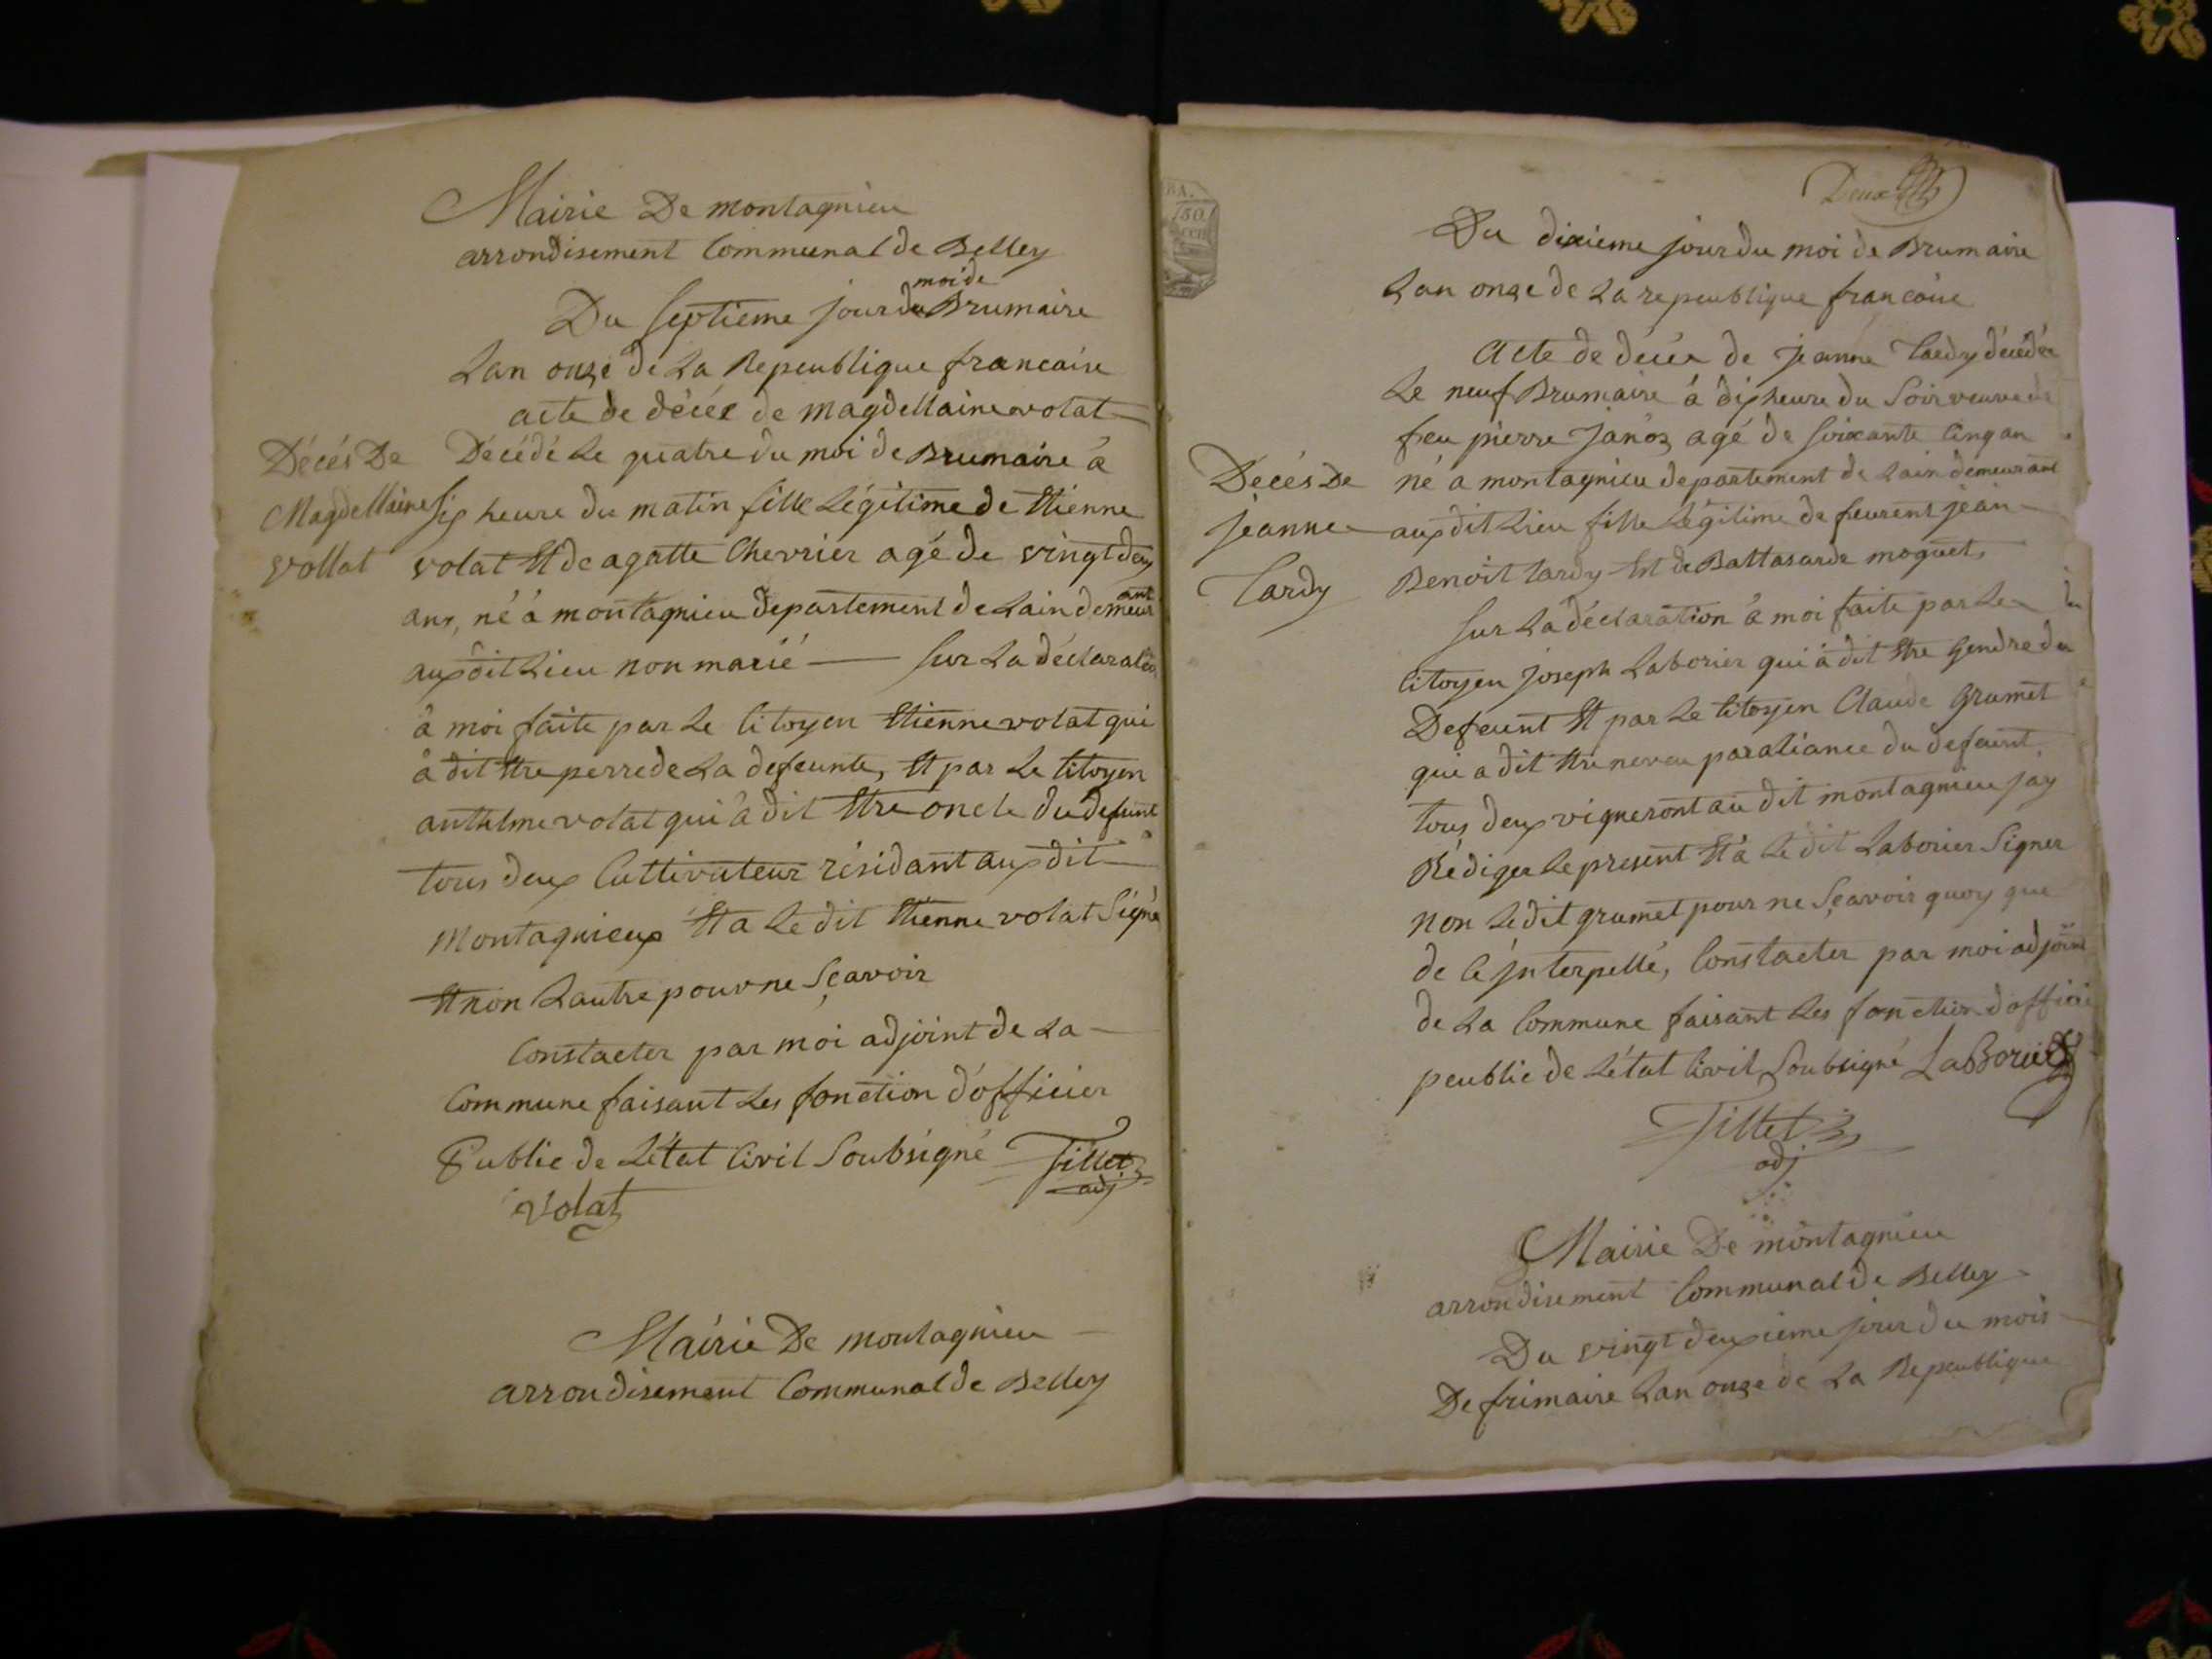 Mairie De montagnieu
arrondisement Communal de Belley
moi de
Du Septieme jour du Brumaire
Lan onze de La Repeublique francaire
acte de décée de magdellaine volat
Décés De
Magdellaine
vollat
Décédé Le quatre du moi de Brumaire à
Six heure du matin fille Légitime de Etienne
volat Et de agatte Chevrier agé de vingt deux
ans, né à montagnieu departement de Lain demeurant
aux dit Lieu non marié — Sur La déclaration
à moi faite par Le Citoyen Etienne volat qui
à dit Etre perre de La defeunte, Et par Le Citoyen
anthelme volat qui à dit Etre oncle du defeunt
tous deux Cultivateur résidant aux dit
Montagnieux Et a Le dit Etienne volat Signé
Et non Lautre pour ne Sçavoir
Constacter par moi adjoint de La
Commune faisant Les fonction d'officier
Public de L'état Civil Soubsigné Tillet
adj
Volat
Mairie De montagnieu
arrondisement Communal de Belley
Deux
Du dixieme jour du moi de Brumaire
Lan onze de La repeublique francoise
Acte de décée de Jeanne Tardy décédée
Le neuf Brumaire à dix heure du Soir veuve de
feu pierre Janoz agé de Soixante Cinq an
Décés De
Jeanne
Tardy
né a montagnieu departement de Lain demeurant
aux dit Lieu fille Légitime de feurent jean
Benoit tardy Et de Baltasarde moguet
Sur La déclaration à moi faite par Le
Citoyen Joseph Laborier qui à dit Etre Gendre du
Defeunt Et par Le Citoyen Claude Grumet
qui a dit Etre neveu par aliance du defeunt,
tous deux vigneront au dit montagnieu jay
Rédiger Le present Et à Le dit Laborier Signer
non Le dit grumet pour ne Sçavoir quoy que
de Ce jnterpellé, Constacter par moi adjoint
de La Commune faisant Les fonction d'officié
peublic de L'état Civil Soubsigné LaBorier
Tillet
adj
Mairie De montagnieu
arrondisement Communal de Belley
Du vingt deuxieme jour du mois
De frimaire Lan onze de La Repeublique